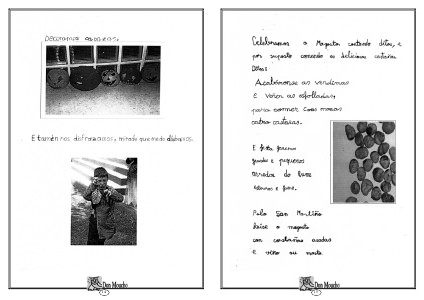 Decoramos cabazas.
E tamén nos disfrazamos, mirade que medo dabamos.
Don Moucho
Celebramos o Magosto contando ditos, e
por suposto comendo as deliciosas castañas
Ditos:
Acabáronse as vendimas
e veñen as esfolladas,
para comer coas mozas
catro castañas.
E festa facemos
grandes e pequenos
arredor do lume
e fume.
Polo San Martiño
deixe o magosto
con castañas asadas
e viño ou mosto.
Don Moucho